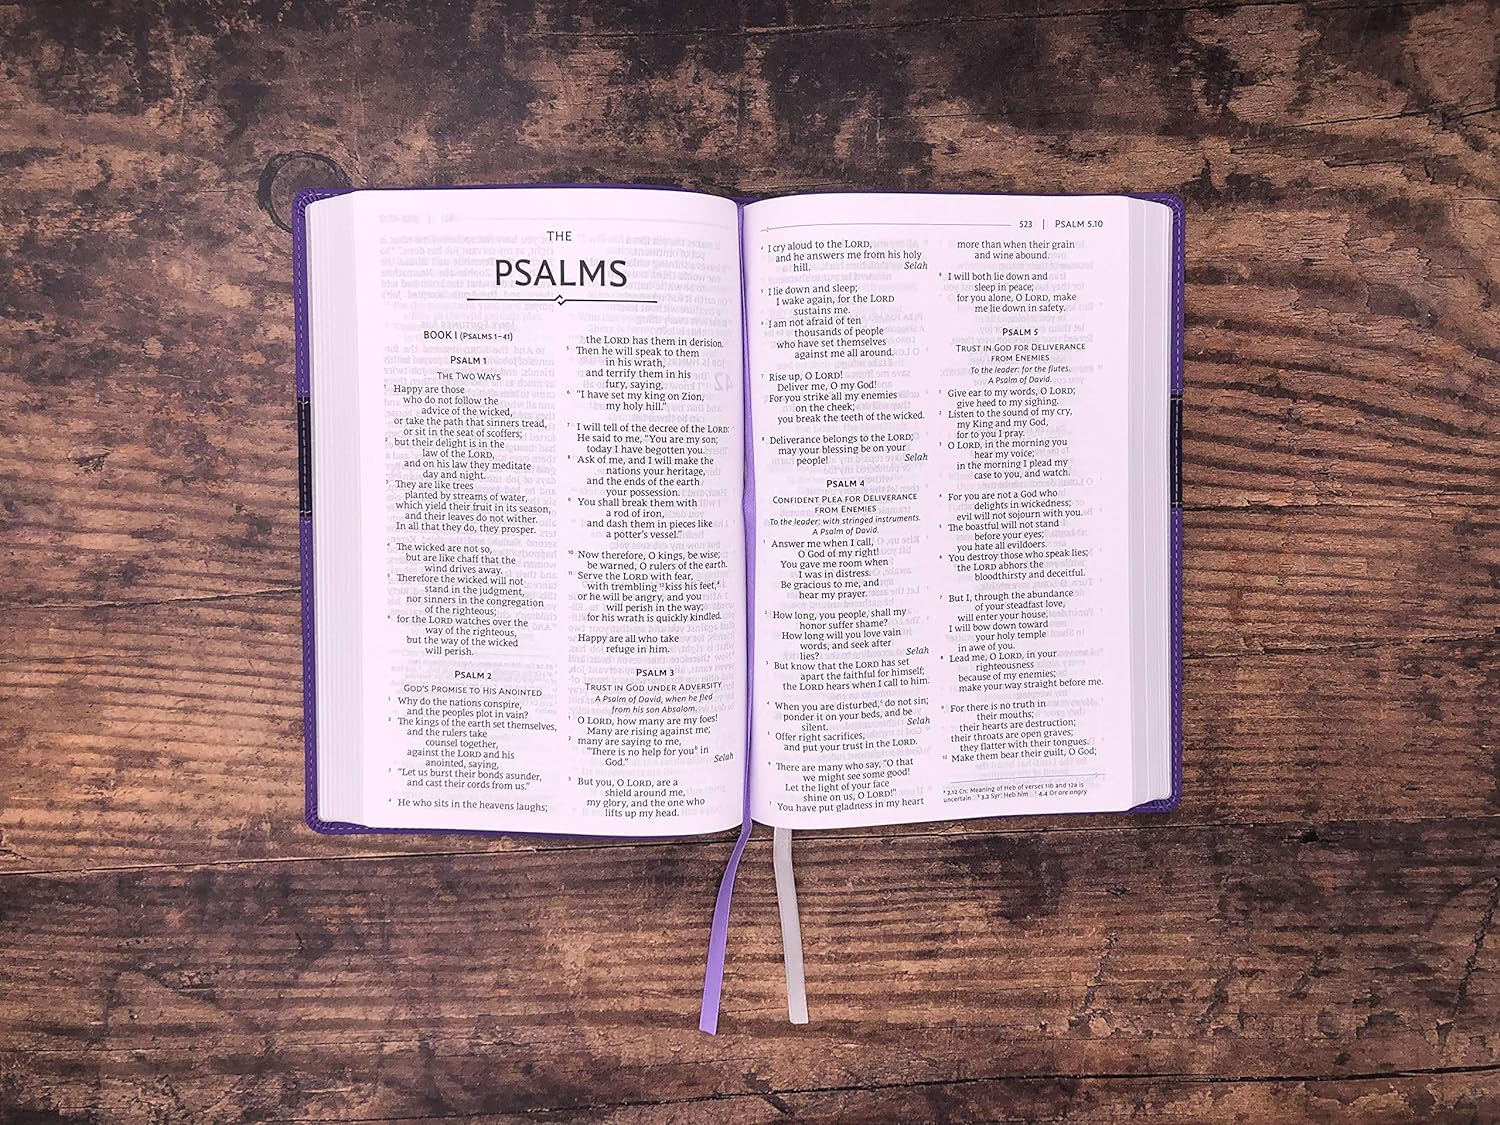 THE
PSALMS
BOOK I (PSALMS 1–41)
PSALM 1
THE TWO WAYS
1 Happy are those
who do not follow the
advice of the wicked,
or take the path that sinners tread,
or sit in the seat of scoffers;
2 but their delight is in the
law of the LORD,
and on his law they meditate
day and night.
3 They are like trees
planted by streams of water,
which yield their fruit in its season,
and their leaves do not wither.
In all that they do, they prosper.
4 The wicked are not so,
but are like chaff that the
wind drives away.
5 Therefore the wicked will not
stand in the judgment,
nor sinners in the congregation
of the righteous;
6 for the LORD watches over the
way of the righteous,
but the way of the wicked
will perish.
PSALM 2
GOD'S PROMISE TO HIS ANOINTED
1 Why do the nations conspire,
and the peoples plot in vain?
2 The kings of the earth set themselves,
and the rulers take
counsel together,
against the LORD and his
anointed, saying,
3 “Let us burst their bonds asunder,
and cast their cords from us.”
4 He who sits in the heavens laughs;
the LORD has them in derision.
5 Then he will speak to them
in his wrath,
and terrify them in his
fury, saying,
6 “I have set my king on Zion,
my holy hill.”
7 I will tell of the decree of the LORD:
He said to me, “You are my son;
today I have begotten you.
8 Ask of me, and I will make the
nations your heritage,
and the ends of the earth
your possession.
9 You shall break them with
a rod of iron,
and dash them in pieces like
a potter's vessel.”
10 Now therefore, O kings, be wise;
be warned, O rulers of the earth.
11 Serve the LORD with fear,
with trembling 12 kiss his feet,a
or he will be angry, and you
will perish in the way;
for his wrath is quickly kindled.
Happy are all who take
refuge in him.
PSALM 3
TRUST IN GOD UNDER ADVERSITY
A Psalm of David, when he fled
from his son Absalom.
1 O LORD, how many are my foes!
Many are rising against me;
2 many are saying to me,
“There is no help for youb in
God.” Selah
3 But you, O LORD, are a
shield around me,
my glory, and the one who
lifts up my head.
523 | PSALM 5.10
4 I cry aloud to the LORD,
and he answers me from his holy
hill. Selah
5 I lie down and sleep;
I wake again, for the LORD
sustains me.
6 I am not afraid of ten
thousands of people
who have set themselves
against me all around.
7 Rise up, O LORD!
Deliver me, O my God!
For you strike all my enemies
on the cheek;
you break the teeth of the wicked.
8 Deliverance belongs to the LORD;
may your blessing be on your
people! Selah
PSALM 4
CONFIDENT PLEA FOR DELIVERANCE
FROM ENEMIES
To the leader: with stringed instruments.
A Psalm of David.
1 Answer me when I call,
O God of my right!
You gave me room when
I was in distress.
Be gracious to me, and
hear my prayer.
2 How long, you people, shall my
honor suffer shame?
How long will you love vain
words, and seek after
lies? Selah
3 But know that the LORD has set
apart the faithful for himself;
the LORD hears when I call to him.
4 When you are disturbed,c do not sin;
ponder it on your beds, and be
silent. Selah
5 Offer right sacrifices,
and put your trust in the LORD.
6 There are many who say, “O that
we might see some good!
Let the light of your face
shine on us, O LORD!”
7 You have put gladness in my heart
more than when their grain
and wine abound.
8 I will both lie down and
sleep in peace;
for you alone, O LORD, make
me lie down in safety.
PSALM 5
TRUST IN GOD FOR DELIVERANCE
FROM ENEMIES
To the leader: for the flutes.
A Psalm of David.
1 Give ear to my words, O LORD;
give heed to my sighing.
2 Listen to the sound of my cry,
my King and my God,
for to you I pray.
3 O LORD, in the morning you
hear my voice;
in the morning I plead my
case to you, and watch.
4 For you are not a God who
delights in wickedness;
evil will not sojourn with you.
5 The boastful will not stand
before your eyes;
you hate all evildoers.
6 You destroy those who speak lies;
the LORD abhors the
bloodthirsty and deceitful.
7 But I, through the abundance
of your steadfast love,
will enter your house,
I will bow down toward
your holy temple
in awe of you.
8 Lead me, O LORD, in your
righteousness
because of my enemies;
make your way straight before me.
9 For there is no truth in
their mouths;
their hearts are destruction;
their throats are open graves;
they flatter with their tongues.
10 Make them bear their guilt, O God;
a 2.12 Cn: Meaning of Heb of verses 11b and 12a is
uncertain b 3.2 Syr: Heb him c 4.4 Or are angry